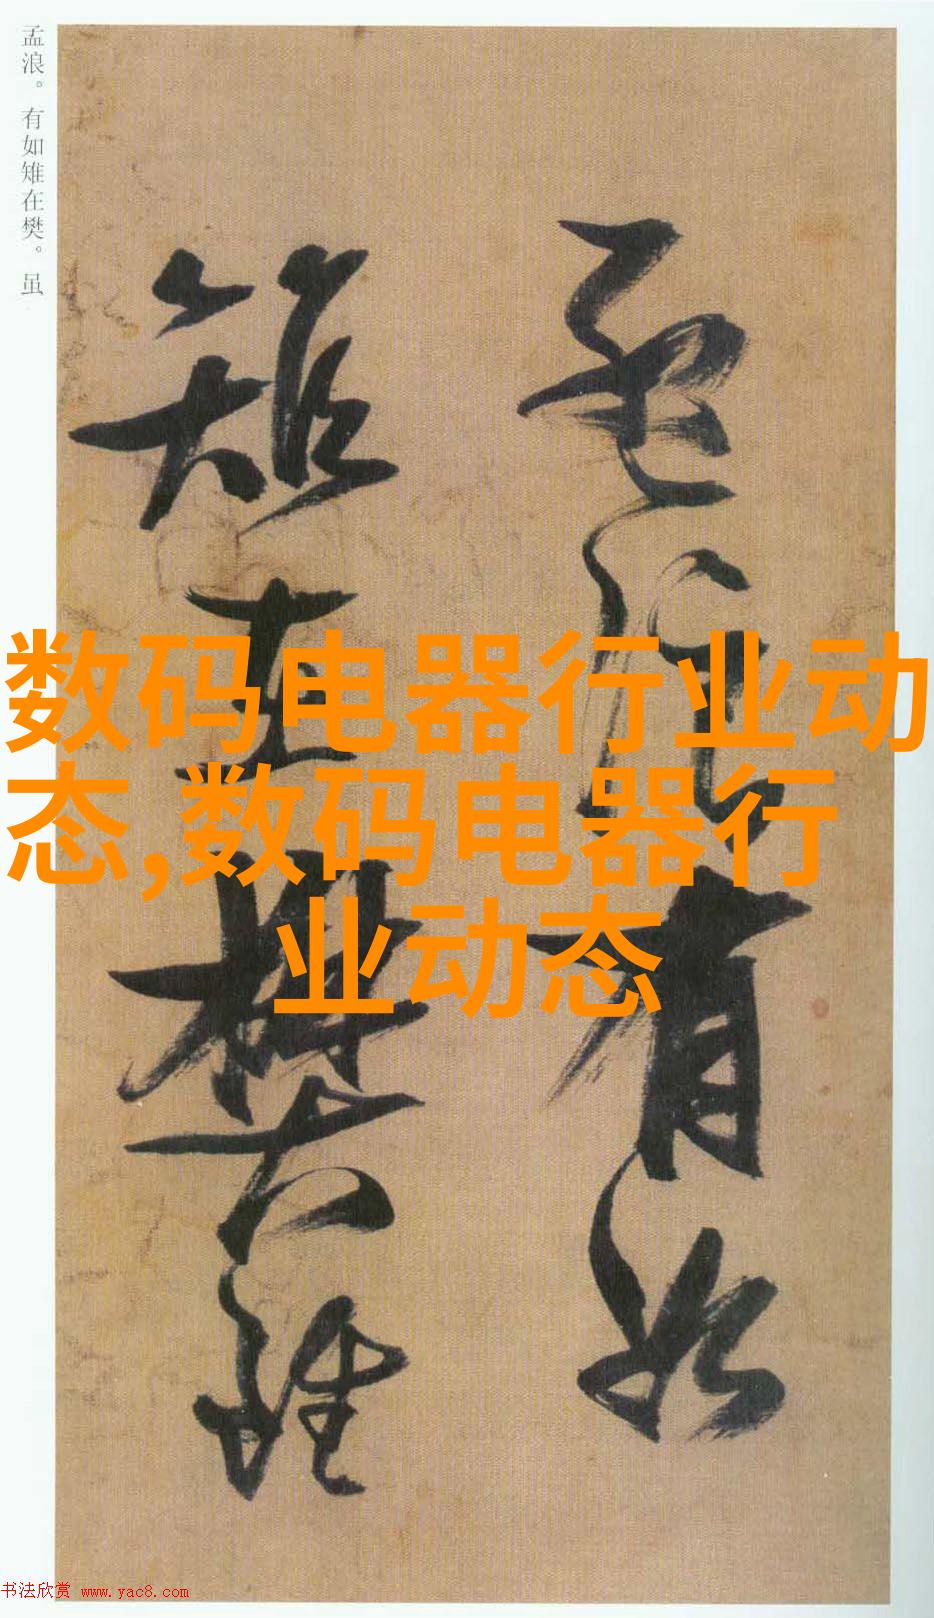 孟浪。有如雉在樊。虽
孟浪有如
雉在樊虽
数码电器行业动
态,数码电器行
业动态
书法欣赏 www.yac8.com